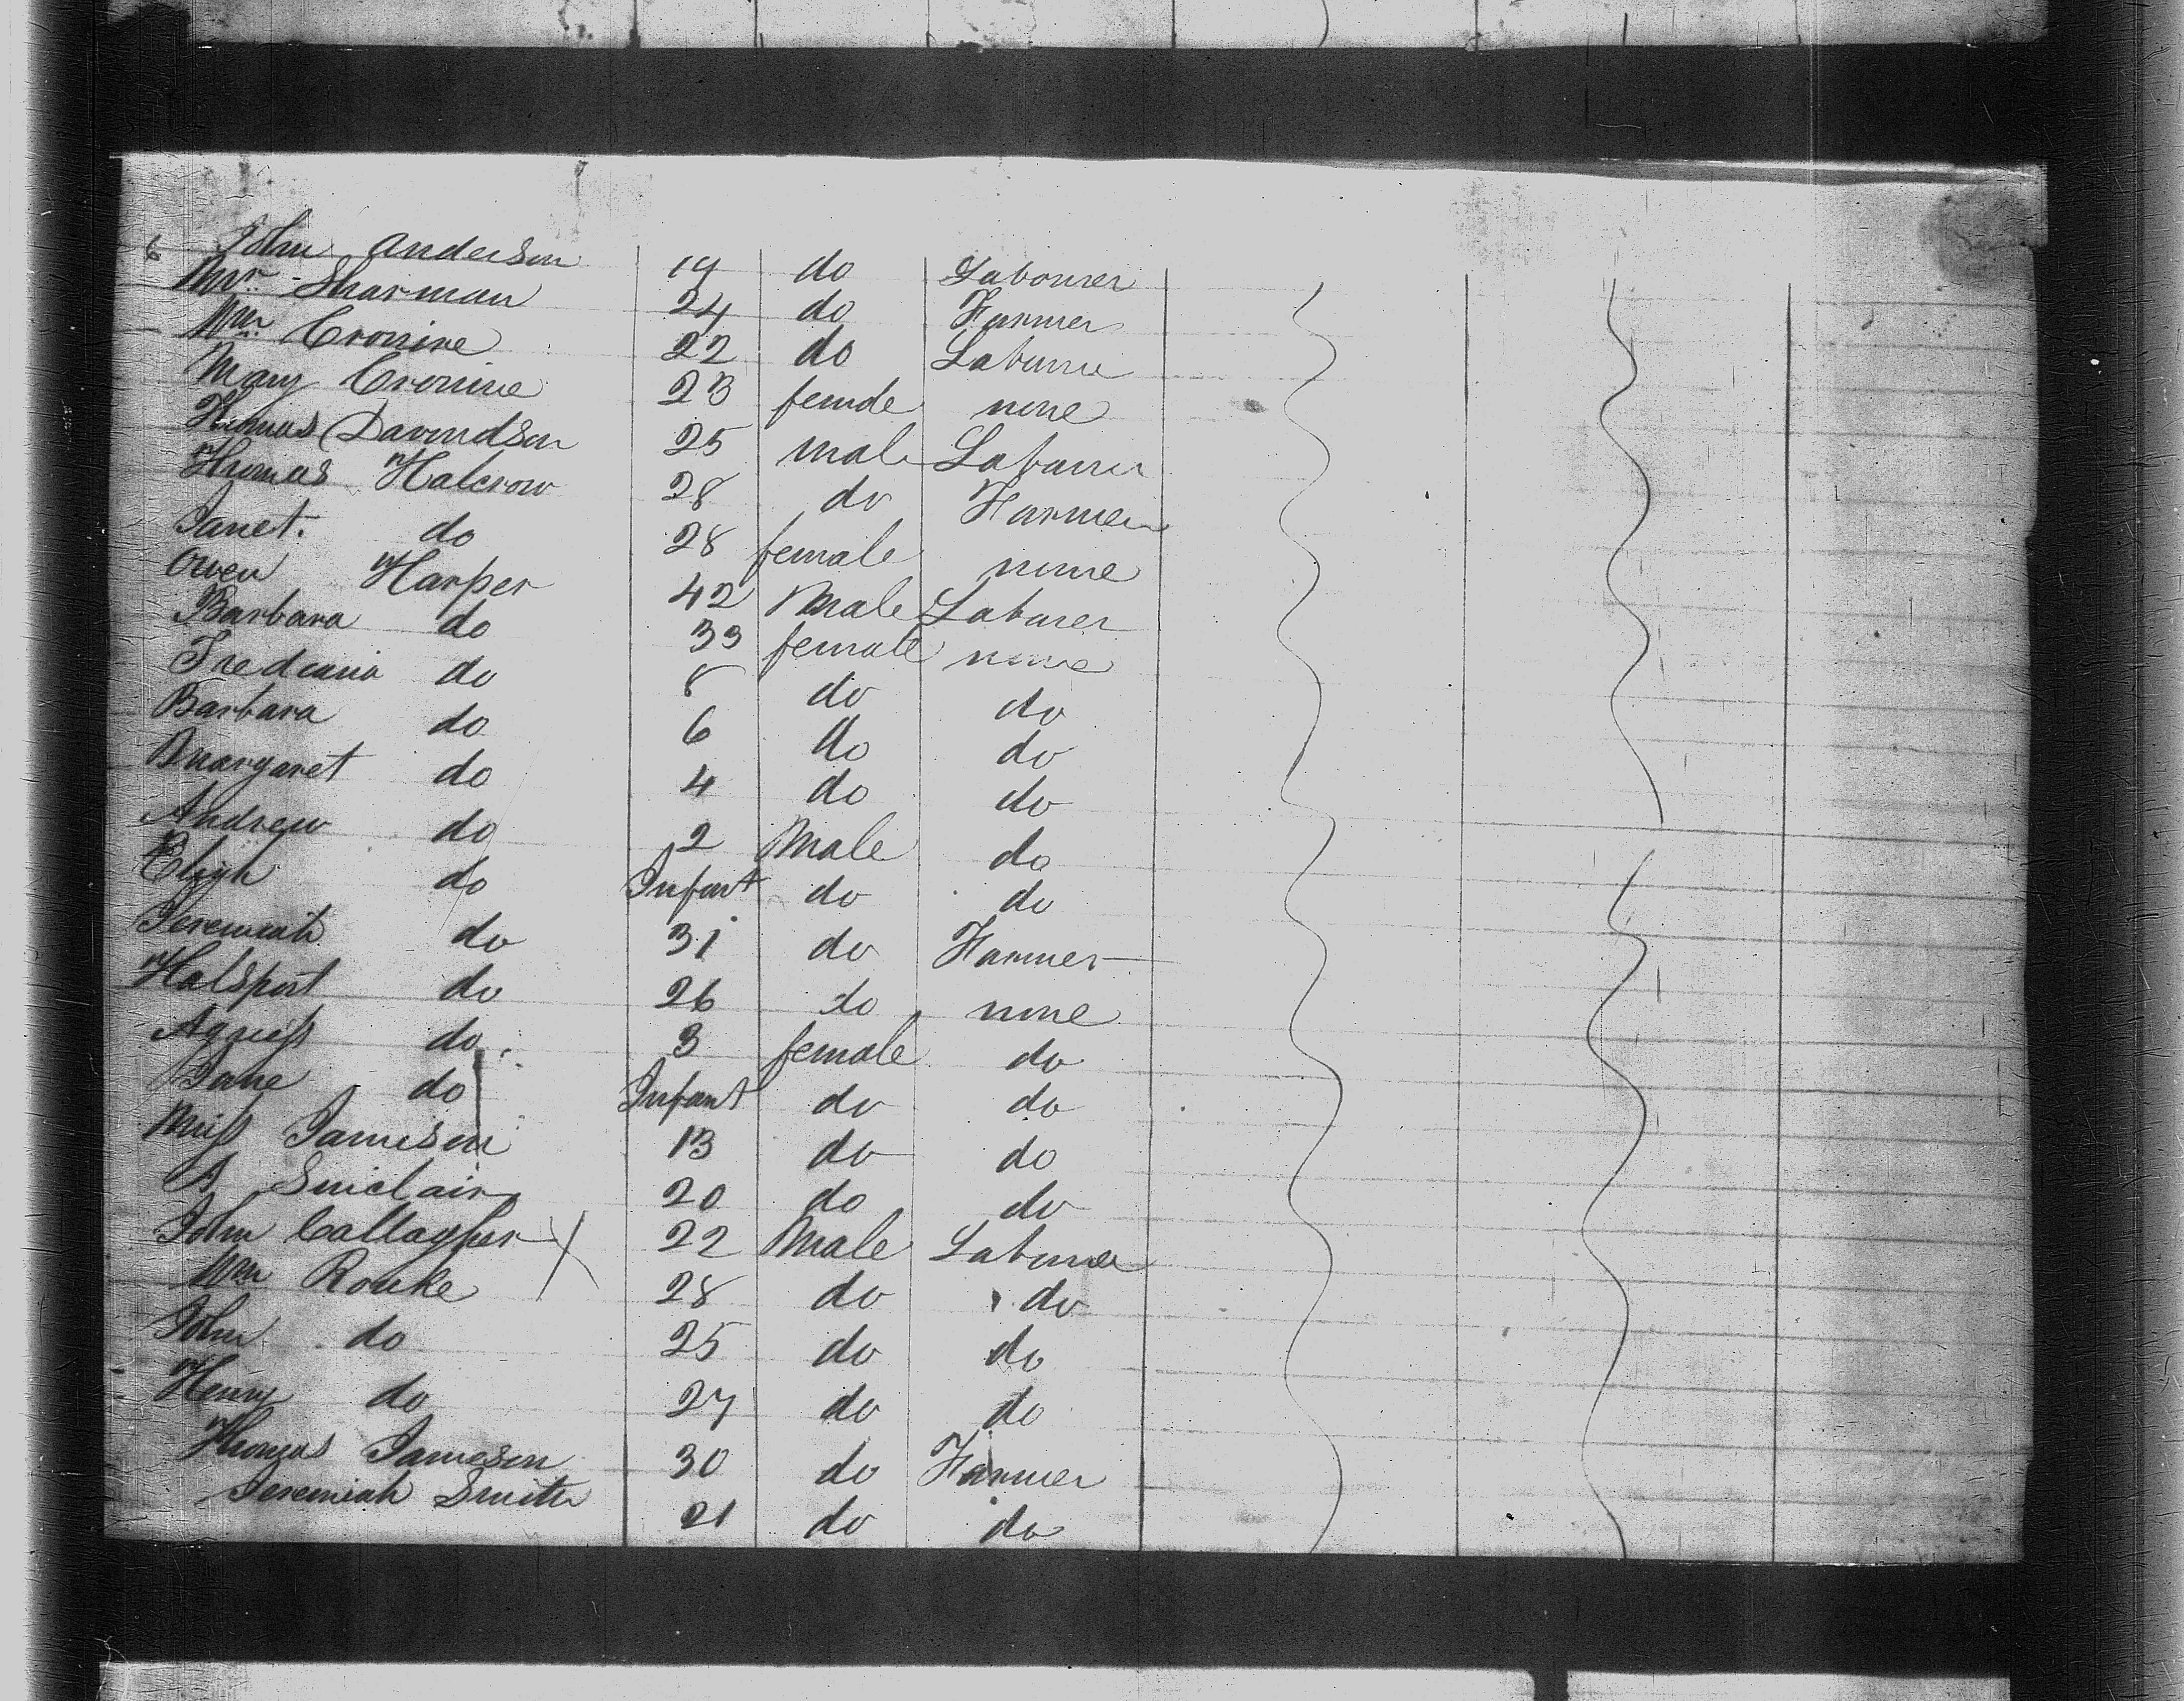 6 John Anderson 19 do Labourer
Mr. Sharman 24 do Farmer
Wm Cronine 22 do Labourer
Mary Cronine 23 female none
Thomas Davindson 25 male Labourer
Thomas Halcrow 28 do Farmer
Janet. do 28 female none
Owen Harper 42 Male Labourer
Barbara do 33 female none
do 8 do do
Barbara do 6 do do
Margaret do 4 do do
Andrew do 2 Male do
do Infant do do
Jeremiah do 31 do Farmer
do 26 do none
Agness do 3 female do
Jane do Infant do do
Miss Jamison 13 do do
Sinclair 20 do do
John Callagher X 22 Male Labourer
Wm Rouke 28 do do
John do 25 do do
Henry do 27 do do
Thomas Jameson 30 do Farmer
Jeremiah Smith 21 do do